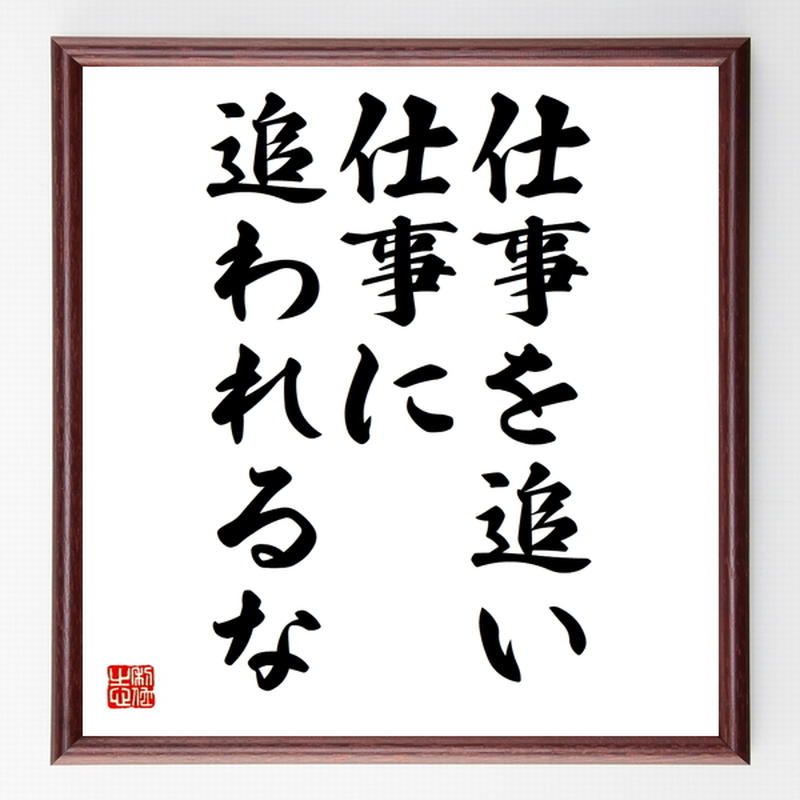 仕事を追い
仕事に
追われるな